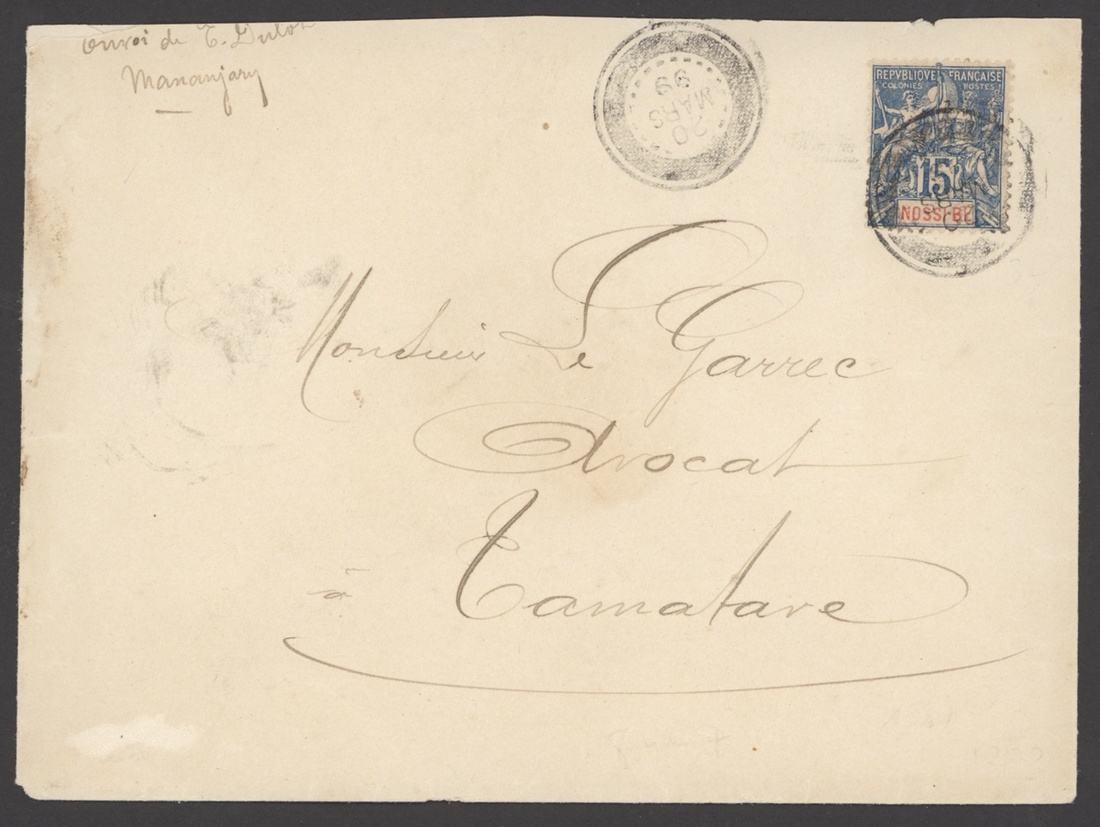 Envoi de E. Dulot
Mananjary
20
MARS
99
REPVBLIQVE FRANÇAISE
COLONIES POSTES
15
NOSSI-BÉ
Monsieur Le Garrec
Avocat
à Tamatave